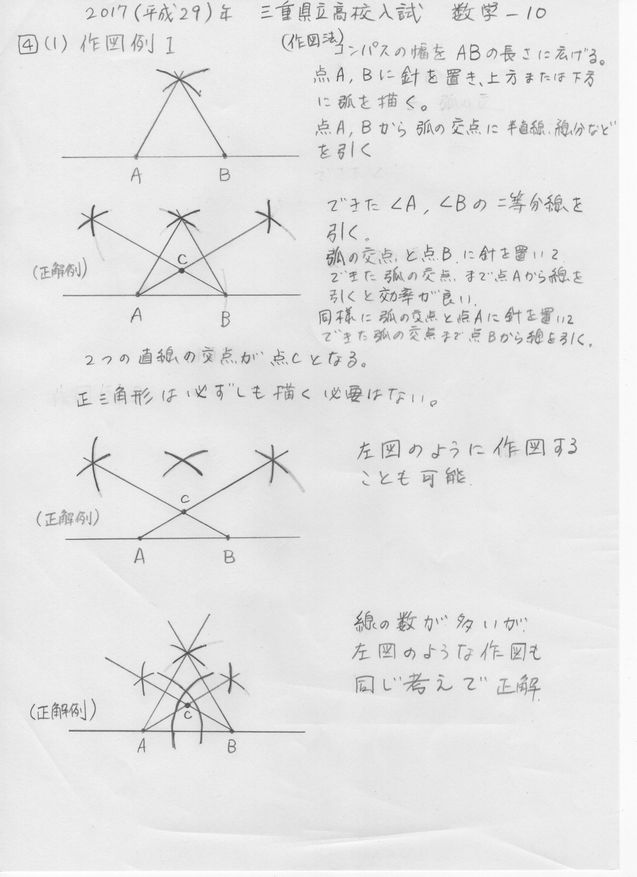 2017(平成29)年 三重県立高校入試 数学-10
4 (1) 作図例I
(作図法)
コンパスの幅をABの長さに広げる。
点A, Bに針を置き、上方または下方
に弧を描く。
点A, Bから 弧の交点に 半直線、線分など
を引く
A B
できた ∠A, ∠Bの二等分線を
引く。
弧の交点と点Bに針を置いて
できた弧の交点まで点Aから線を
引くと効率が良い。
同様に弧の交点と点Aに針を置いて
できた弧の交点まで点Bから線を引く。
(正解例)
C
A B
2つの直線の交点が点Cとなる。
正三角形は必ずしも描く必要はない。
左図のように作図する
ことも可能
(正解例)
C
A B
線の数が多いが
左図のような作図も
同じ考えで正解
(正解例)
C
A B